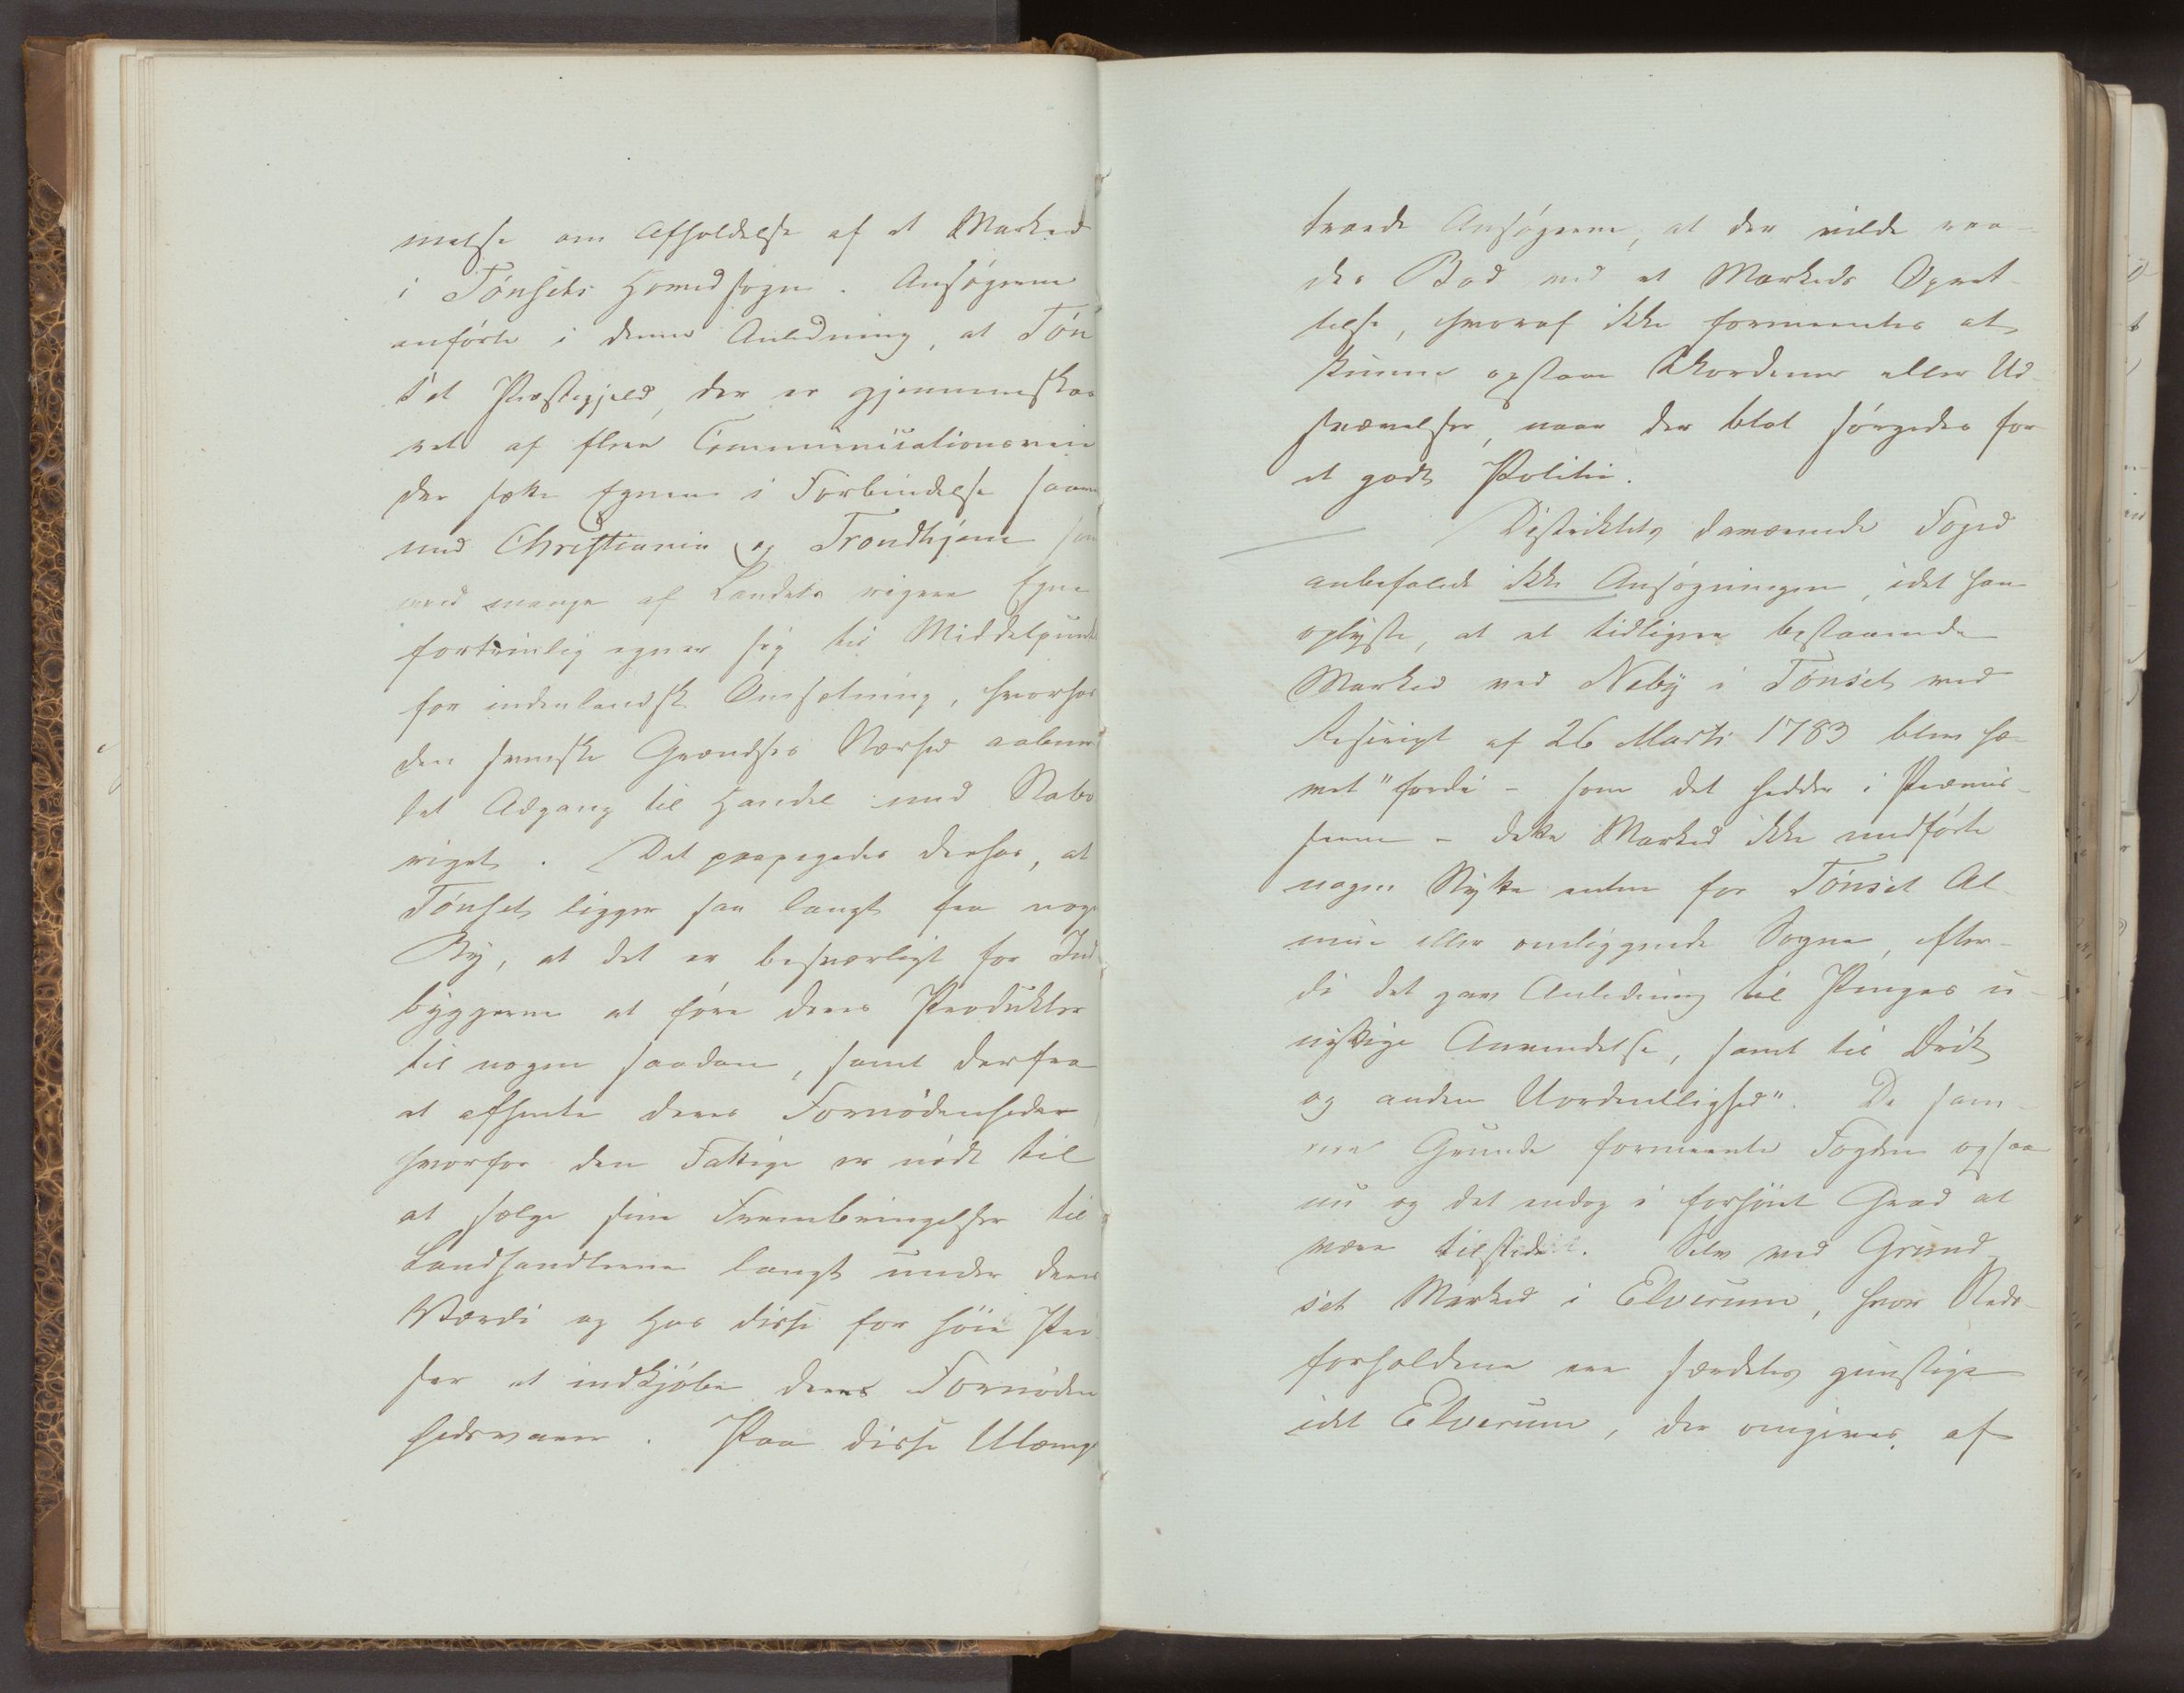 melse om Afholdelse af et Marked
i Tønsets Hovedsogn. Ansøgerne
anførte i denne Anledning, at Tøn
set Præstegjeld, der er gjennemskaa
ret af flere Communicationsveie
der sætte Egnene i Forbindelse saavel
med Christiania og Trondhjem som
med mange af Landets rigere Egne
fortrinlig egner sig til Middelpunct
for indenlandsk Omsætning, hvorhos
den svenske Grændses Nærhed aabner
let Adgang til Handel med Nabo
riget. Det paapegedes derhos, at
Tønset ligger saa langt fra nogen
By, at det er besværligt for Ind
byggerne at føre deres Produkter
til nogen saadan, samt derfra
at afhente deres Fornødenheder
hvorfor den Fattige er nødt til
at sælge sine Frembringelser til
Landhandlerne langt under deres
Værdi og hos disse for høie Pri
ser at indkjøbe deres Fornøden
hedsvarer. Paa disse Ulæmp
troede Ansøgerne, at der vilde raa-
des Bod ved et Markeds Opret-
telse, hvoraf ikke formeentes at
kunne opstaae Uordener eller Ud-
svævelser, naar der blot sørgedes for
et godt Politi.
Distriktets daværende Foged
anbefalede ikke Ansøgningen, idet han
oplyste, at et tidligere bestaaende
Marked ved Neby i Tønset ved
Rescript af 26 Marts 1783 blev hæ-
vet "fordi - som det hedder i Præmis-
serne - dette Marked ikke medførte
nogen Nytte enten for Tønset Al-
mue eller omliggende Sogne, efter-
di det gav Anledning til Penges u-
nyttige Anvendelse, samt til Drik
og anden Uordentlighed". De sam-
me Grunde formeente Fogden ogsaa
nu og det endog i forhøiet Grad at
være tilstede. Selv ved Grund-
set Marked i Elverum, hvor Steds-
forholdene ere særdeles gunstige
idet Elverum, der omgives af